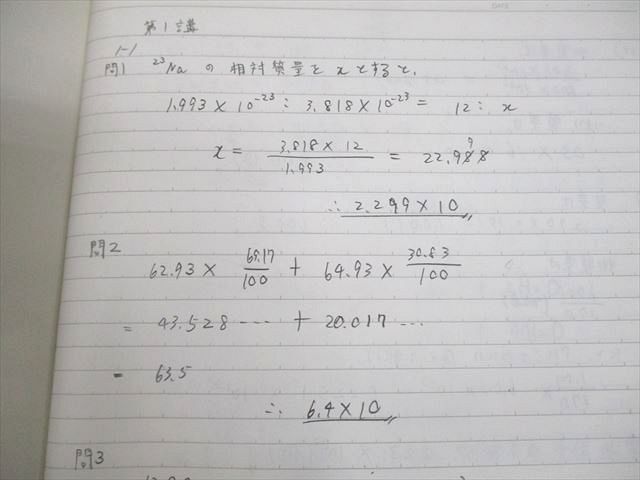 第1講
1-1
問1 ²³Na の 相対質量を x とすると、
1.993 × 10⁻²³ : 3.818 × 10⁻²³ = 12 : x
x = 3.818 × 12 / 1.993 = 22.988
9
∴ 2.299 × 10
問2
62.93 × 69.17/100 + 64.93 × 30.83/100
= 43.528 … + 20.017 …
= 63.5
∴ 6.4 × 10
問3